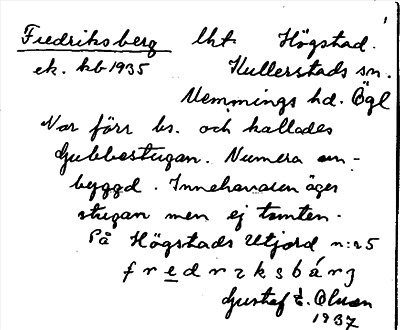 1
Fredriksberg lht Högstad.
ek. kb 1935 Kullerstads sn.
Memmings hd. Ögl
Var förr bs. och kallades
Gubbestugan. Numera om-
byggd. Innehavaren äger
stugan men ej tomten.
På Högstads Utjord n:r 5
fredrıksbárj
Gustaf E. Olsson
1937